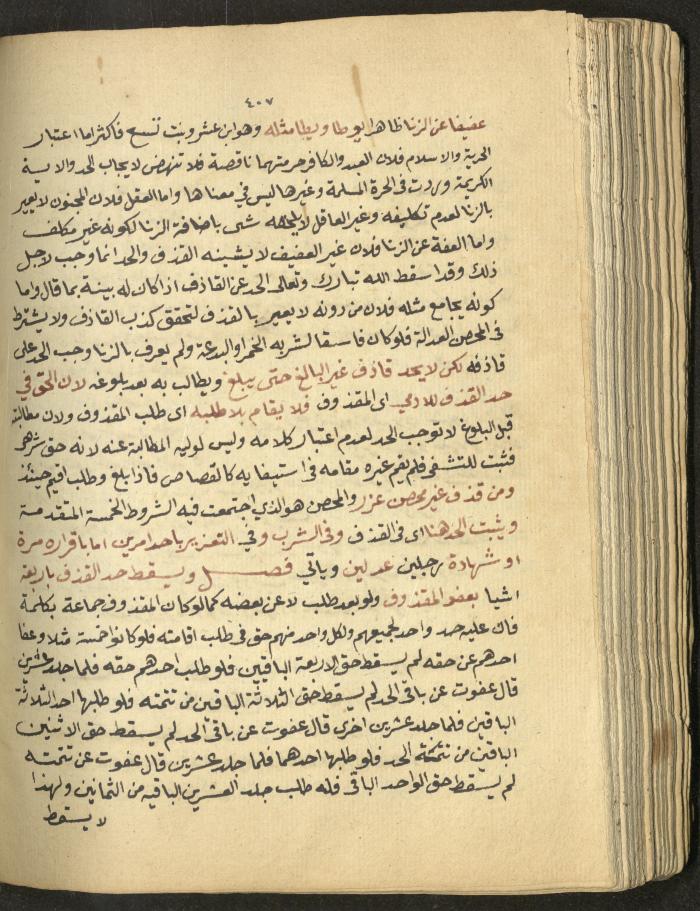 ٤٠٧
عفيفا عن الزنا ظاهرا يوطا ويطا مثله وهو ابن عشر وبنت تسع فاكثر اما اعتبار
الحرية والاسلام فلان العبد والكافر حرمتهما ناقصة فلا تنهض لايجاب الحد والاية
الكريمة وردت في الحرة المسلمة وغيرها ليس في معناها واما العقل فلان المجنون لا يعير
بالزنا لعدم تكليفه وغير العاقل لا يلحقه شي باضافة الزنا لكونه غير مكلف
واما العفة عن الزنا فلان غير العفيف لا يشينه القذف والحد انما وجب لاجل
ذلك وقد اسقط الله تبارك وتعالى الحد عن القاذف اذا كان له بينة بما قال واما
كونه يجامع مثله فلان من دونه لا يعير بالقذف لتحقق كذب القاذف ولا يشترط
في المحصن العدالة فلو كان فاسقا لشربه الخمر او البدعة ولم يعرف بالزنا وجب الحد على
قاذفه لكن لا يحد قاذف غير البالغ حتى يبلغ ويطالب به بعد بلوغه لان الحق في
حد القذف للادمي اى المقذوف فلا يقام بلا طلبه اى طلب المقذوف ولان مطالبة
قبل البلوغ لا توجب الحد لعدم اعتبار كلامه وليس لوليه المطالبة عنه لانه حق شرعي
فثبت للتشفي فلم يقم غيره مقامه في استيفايه كالقصاص فاذا بلغ وطلب اقيم حينئذ
ومن قذف غير محصن عزر والمحصن هو الذي اجتمعت فيه الشروط الخمسة المتقدمة
ويثبت الحد هنا اى في القذف وفي الشرب وفي التعزير باحد امرين اما باقراره مرة
او شهادة رجلين عدلين وياتي فصل ويسقط حد القذف باربعة
اشيا بعفو المقذوف ولو بعد طلب لا عن بعضه كما لو كان المقذوف جماعة بكلمة
فان عليه حد واحد لجميعهم ولكل واحد منهم حق في طلب اقامته فلو كانوا خمسة مثلا وعفا
احدهم عن حقه لم يسقط حق الاربعة الباقين فلو طلب احدهم حقه فلما جلد عشرين
قال عفوت عن باقي الحد لم يسقط حق الثلاثة الباقين من تتمته فلو طلبها احد الثلاثة
الباقين فلما جلد عشرين اخرى قال عفوت عن باقي الحد لم يسقط حق الاثنين
الباقين من تتمة الحد فلو طلبها احدهما فلما جلد عشرين قال عفوت عن تتمته
لم يسقط حق الواحد الباقي فله طلب جلد العشرين الباقيه من الثمانين ولهذا
لا يسقط